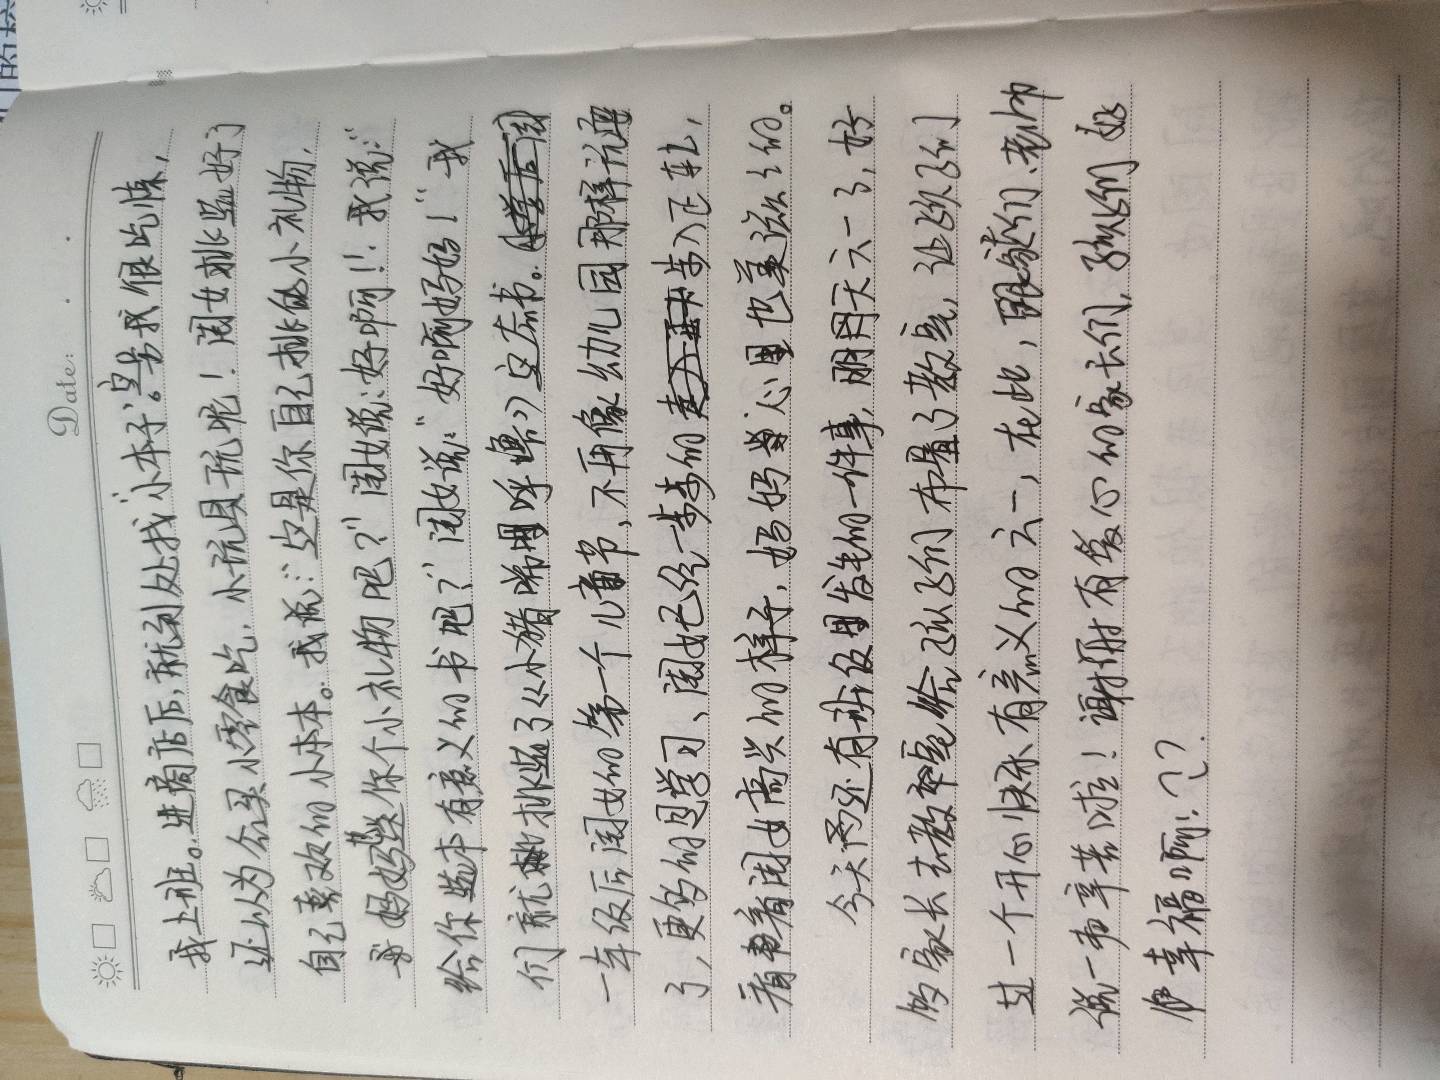 Date:
我上班。进商店后,就到处找“小本子”。号我很吃惊,
还以为会买小零食吃,小玩具玩呢!闺女挑选好了
自己喜欢的小本本。我说:“这是你自己挑的小礼物,
妈妈送你个小礼物吧?”闺女说:好啊!!我说:“
给你选本有意义的书吧?”闺女说:“好啊妈妈!”我
们就挑选了《小猪唏哩呼噜》这本书。
一年级后闺女的第一个儿童节,不再像幼儿园那样玩
了,更多的因学习、闺女已经一步步的步入正轨,
看着闺女高兴的样子,妈妈心里也美滋滋的。
今天还有班级里发生的一件事,明天六一了,好
多家长去教室给孩子们布置了教室,让孩子们
过一个开心快乐有意义的六一,在此,跟家长们、老师
说一声辛苦啦!谢谢有爱心的家长们,孩子们好
幸福啊!??